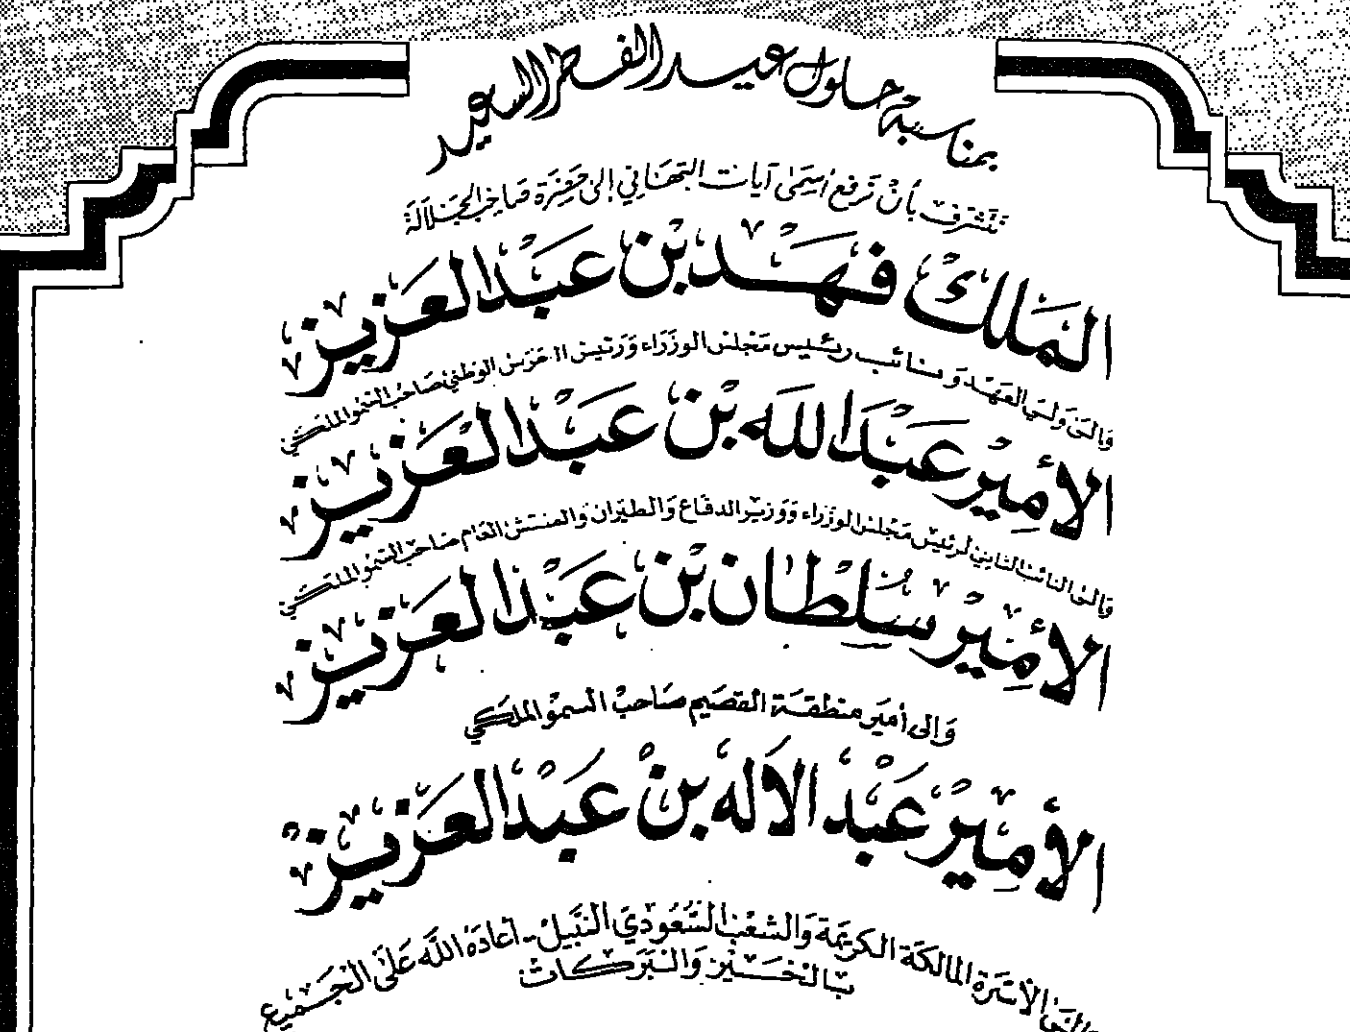 بمناسبة حلول عيد الفطر السعيد
نتشرف بأن نرفع أسمى آيات التهاني إلى حضرة صاحب الجلالة
الملك فهد بن عبد العزيز
وإلى ولي العهد ونائب رئيس مجلس الوزراء ورئيس الحرس الوطني صاحب السمو الملكي
الأمير عبد الله بن عبد العزيز
وإلى النائب الثاني لرئيس مجلس الوزراء ووزير الدفاع والطيران والمفتش العام صاحب السمو الملكي
الأمير سلطان بن عبد العزيز
وإلى أمير منطقة القصيم صاحب السمو الملكي
الأمير عبد الإله بن عبد العزيز
وإلى الأسرة المالكة الكريمة والشعب السعودي النبيل - أعاده الله على الجميع
بالخير والبركات